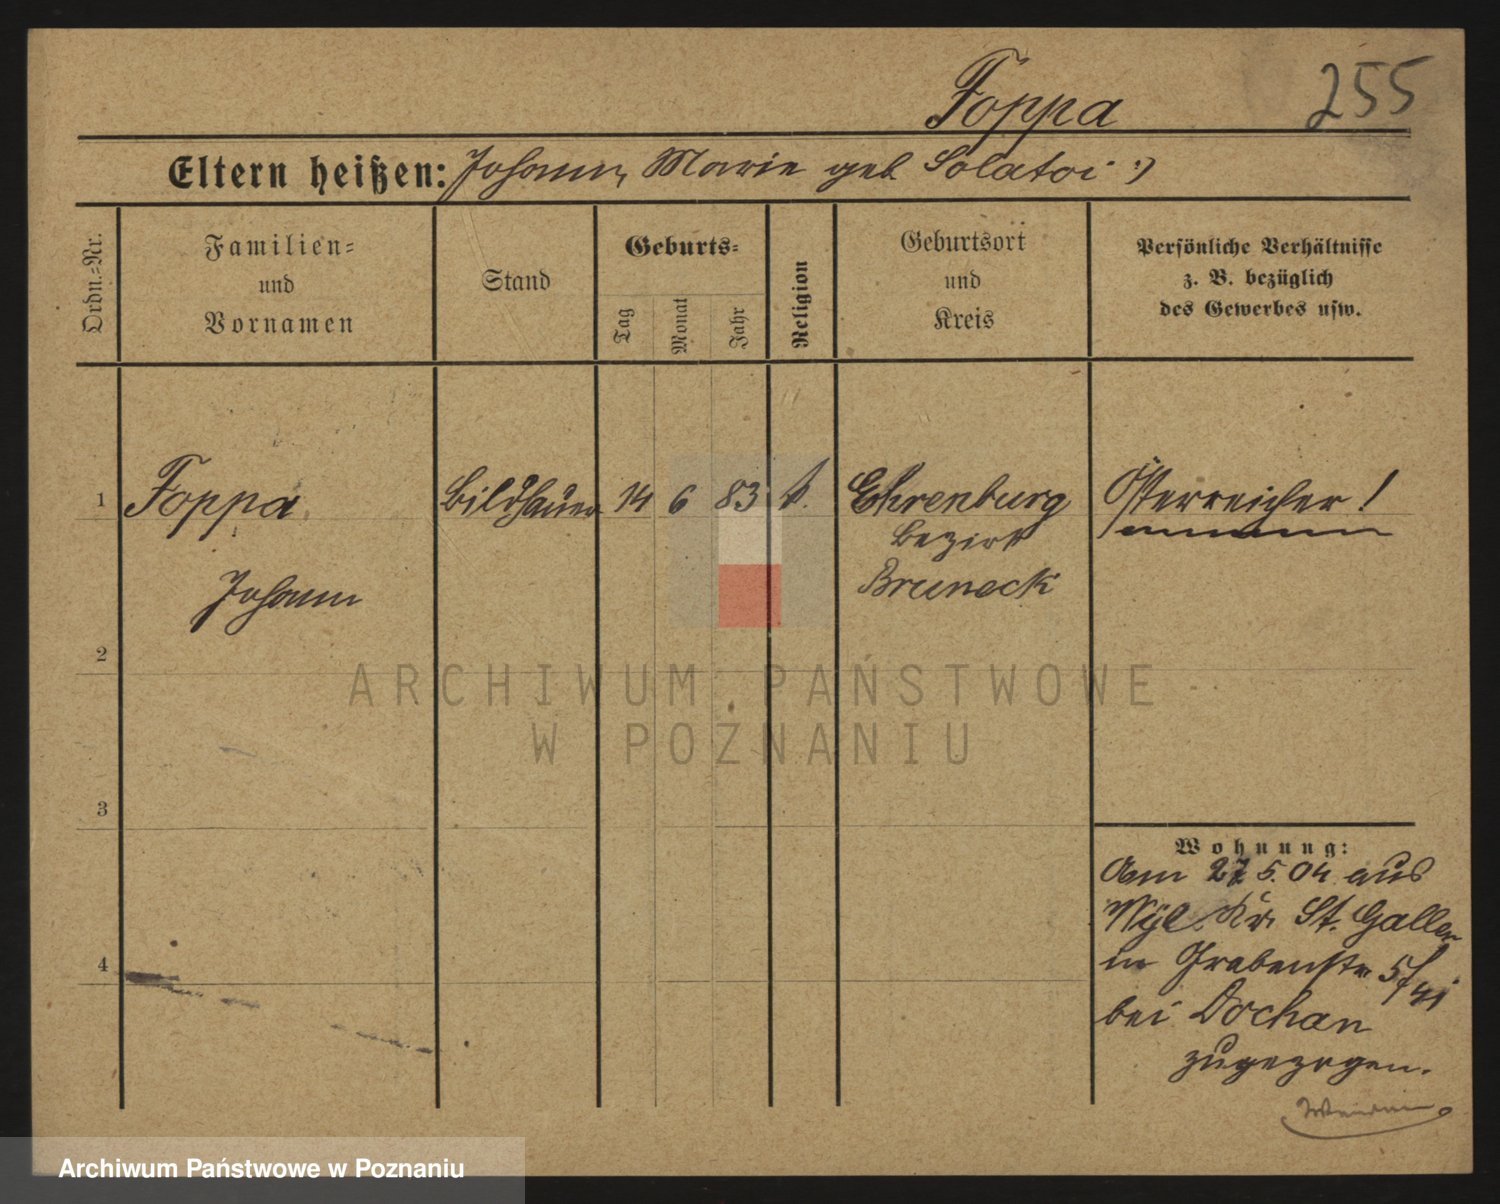 Foppa
255
Eltern heißen: Johann, Marie geb Solatoi :)
Ordn.=Nr.
Familien=
und
Vornamen
Stand
Geburts=
Tag
Monat
Jahr
Religion
Geburtsort
und
Kreis
Persönliche Verhältnisse
z. B. bezüglich
des Gewerbes usw.
1 Foppa Bildhauer 14 6 83 k. Ehrenburg Österreicher !
Bezirk
Johann Bruneck
2
3
4
Wohnung:
Am 27 5. 04 aus
Wyl. Kr. St. Gallen
in Grabenstr
bei Dochan
zugezogen.
ARCHIWUM PAŃSTWOWE
W POZNANIU
Archiwum Państwowe w Poznaniu